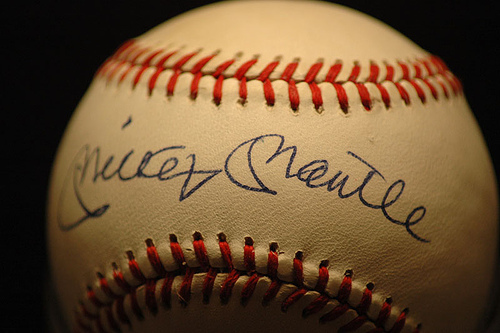 Mickey Mantle